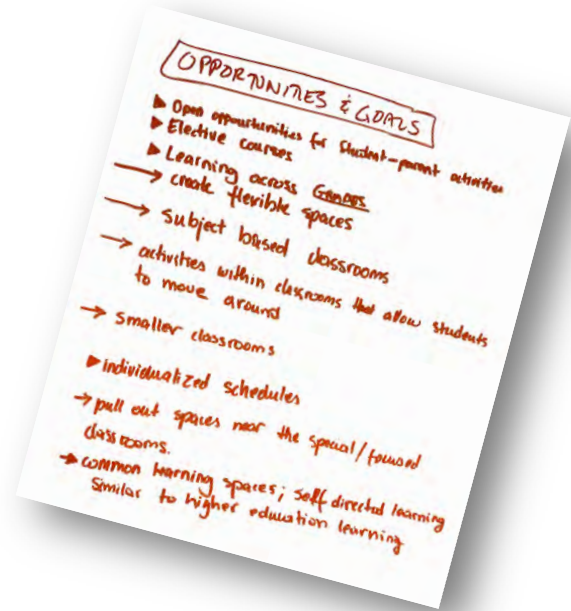 OPPORTUNITIES & GOALS
▶ Open opportunities for Student-parent activities
▶ Elective courses
▶ Learning across GRADES
→ create flexible spaces
→ subject based classrooms
→ activities within classrooms that allow students
to move around
→ smaller classrooms
▶ individualized schedules
→ pull out spaces near the special/focused
classrooms.
→ common learning spaces; self directed learning
Similar to higher education learning